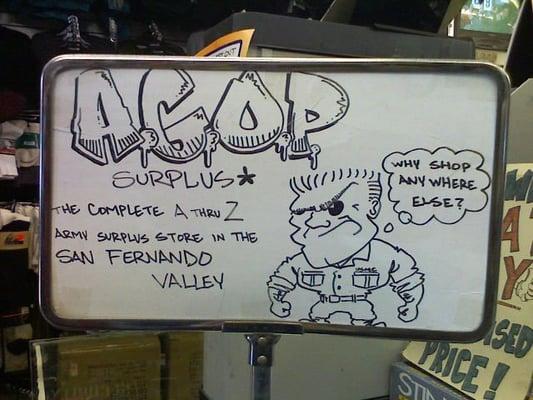 AGOP
SURPLUS*
THE COMPLETE A THRU Z
ARMY SURPLUS STORE IN THE
SAN FERNANDO
VALLEY
WHY SHOP
ANYWHERE
ELSE?
PRICE!